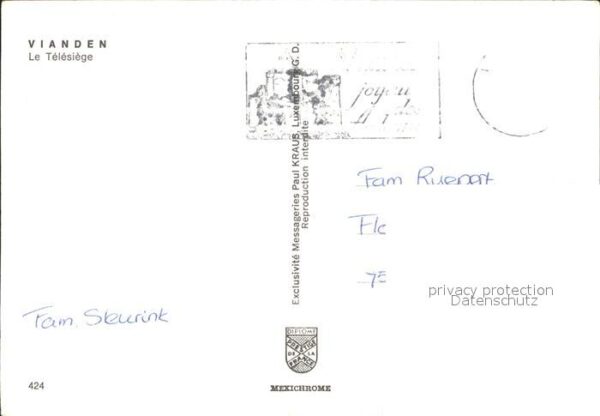 VIANDEN
Le Télésiège
joyau
des
Exclusivité Messageries Paul KRAUS, Luxembourg G. D.
Reproduction interdite
Fam
Flc
7E
privacy protection
Datenschutz
Fam. Steurink
DIPLOME
PRESTIGE
DE LA
FRANCE
424
MEXICHROME